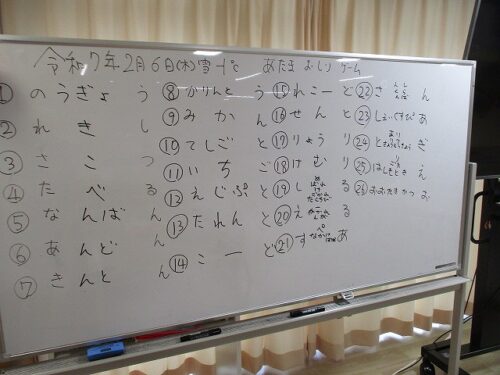 令和7年2月6日(木)雪-1℃ あたま おしり ゲーム
①のうぎょう
②れきし
③さこつ
④たべる
⑤なんばん
⑥あんどん
⑦きんとん
⑧かりんとう
⑨みかん
⑩てしごと
⑪いちご
⑫えじぷと
⑬たれんと
⑭こーど
⑮れこーど
⑯せん
⑰りょうり
⑱けむり
⑲しる
⑳える
㉑すあ
㉒さん
㉓しぇいくすぴあ
㉔とぎ
㉕え
㉖